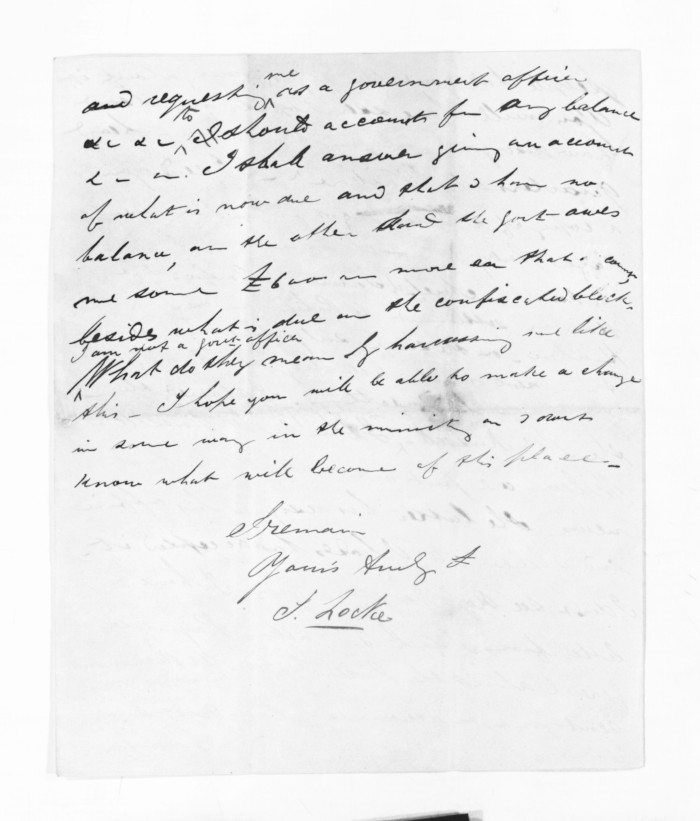 and requesting me as a government officer
&c &c to I should account for any balance
&c &c. I shall answer giving an account
of what is now due and that I have no
balance, on the other hand the govt owes
me some £600 or more on that
besides what is due on the confiscated block
I am not a govt officer
What do they mean by harrassing me like
this – I hope you will be able to make a change
in some way in the ministry or I dont
know what will become of this place –
I remain
Yours truly
S. Locke